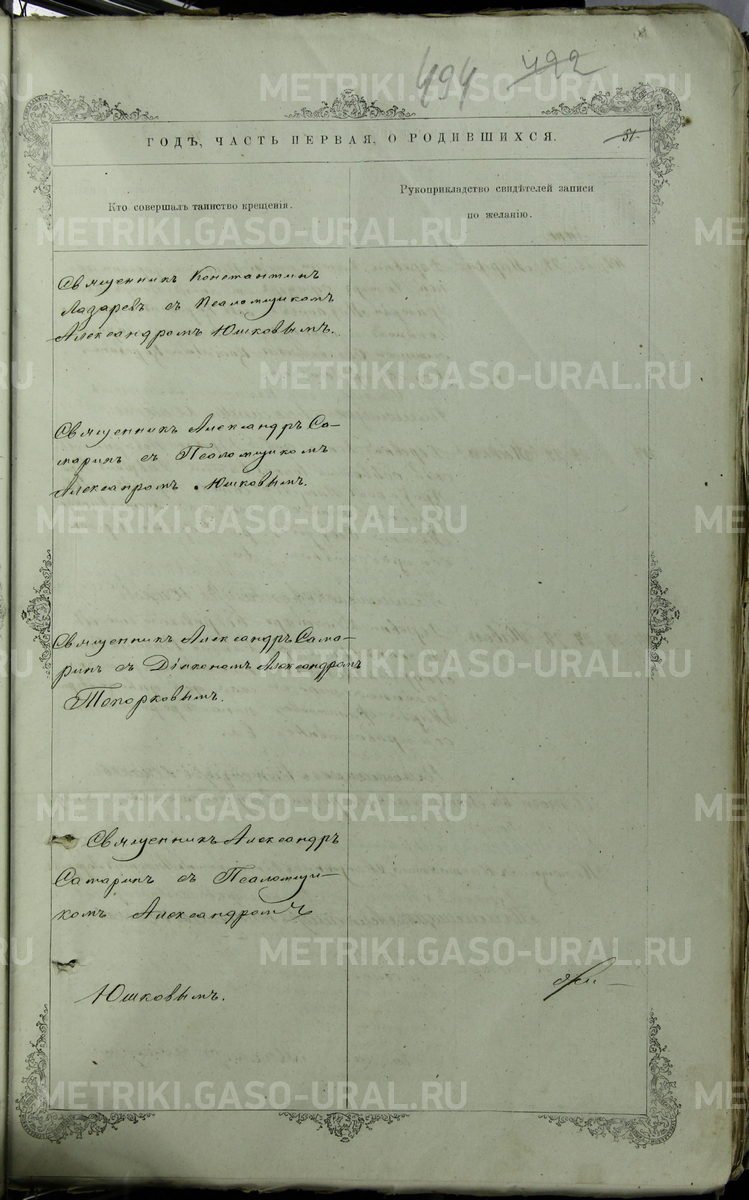 494 492
ГОДЪ, ЧАСТЬ ПЕРВАЯ, О РОДИВШИХСЯ.
51.
Кто совершалъ таинство крещенія.
Рукоприкладство свидѣтелей записи
по желанію.
Священникъ Константинъ
Лазаревъ съ Псаломщикомъ
Александромъ Юшковымъ.
Священникъ Александръ Са-
маринъ съ Псаломщикомъ
Алексапромъ Юшковымъ.
Священникъ Александръ Сама-
ринъ съ Діакономъ Александромъ
Топорковымъ.
Священникъ Александръ
Самаринъ съ Псаломщи-
комъ Александромъ
Юшковымъ.
METRIKI.GASO-URAL.RU